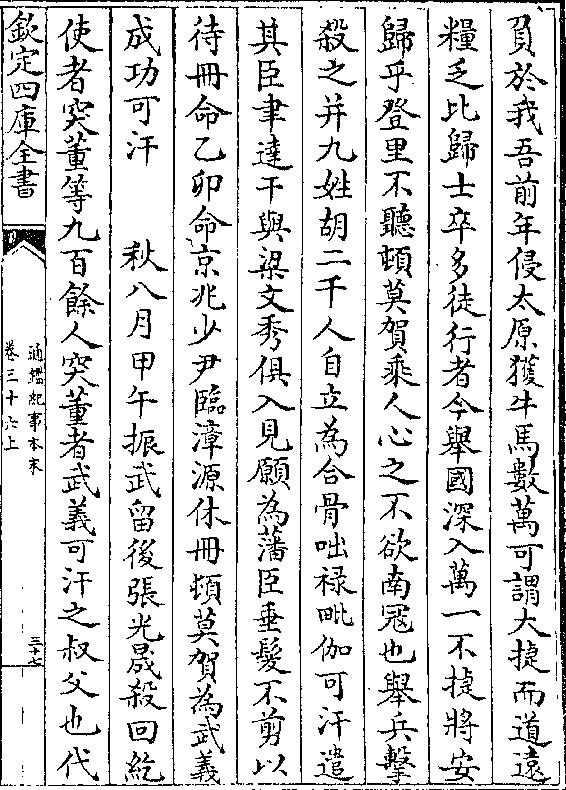 負於我吾前年侵太原獲牛馬數萬可謂大捷而道遠
糧乏比歸士卒多徒行者今舉國深入萬一不捷將安
歸乎登里不聽頓莫賀乘人心之不欲南冦也舉兵擊
殺之并九姓胡二千人自立為合骨咄禄毗伽可汗遣
其臣聿達干與梁文秀俱入見願為藩臣垂髮不剪以
待冊命乙卯命京兆少尹臨漳源休冊頓莫賀為武義
成功可汗　秋八月甲午振武留後張光晟殺回紇
使者突董等九百餘人突董者武義可汗之叔父也代
欽定四庫全書
通鑑紀事本末
卷三十六上
三十七